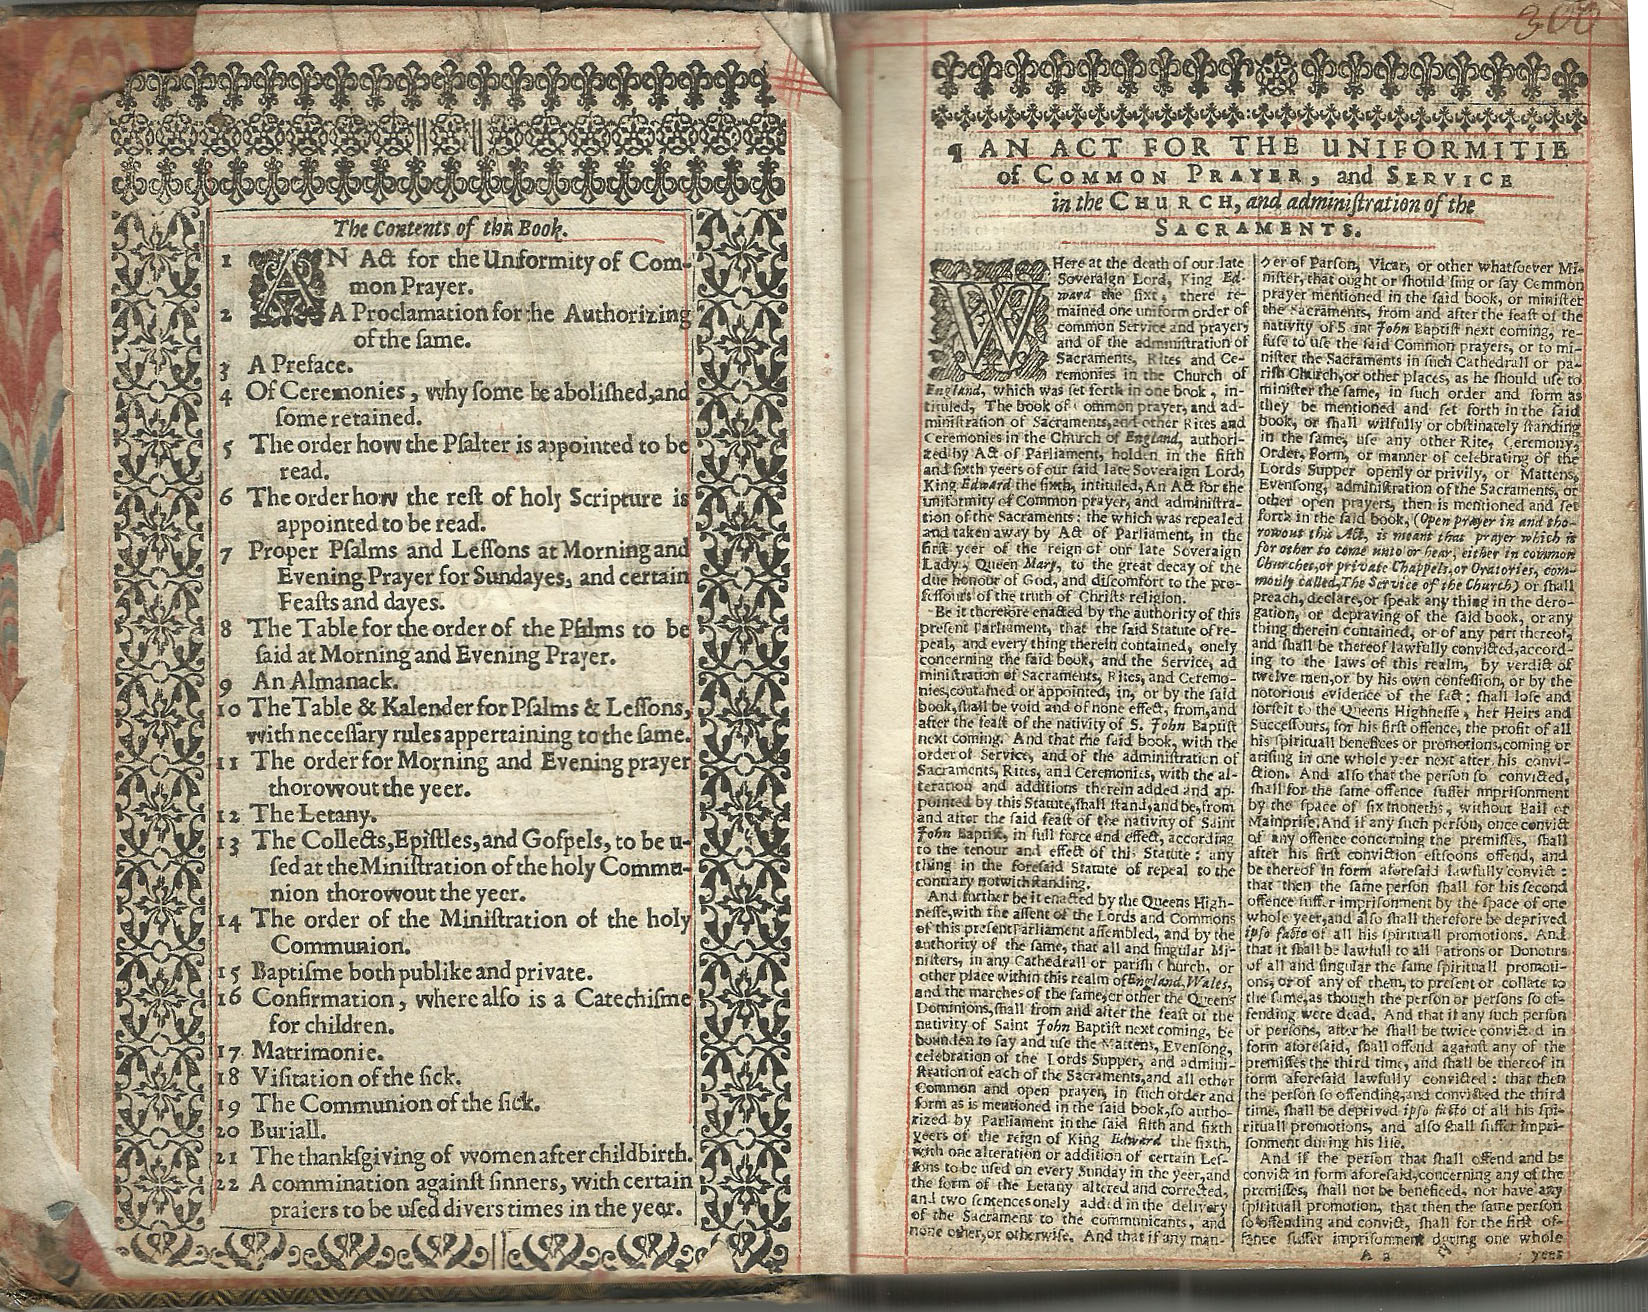 The Contents of this Book.
1 AN Act for the Unformity of Com-
mon Prayer.
2 A Proclamation for the Authorizing
of the ſame.
3 A Preface.
4 Of Ceremonies, why ſome be aboliſhed, and
ſome retained.
5 The order how the Pſalter is appointed to be
read.
6 The order how the reſt of holy Scripture is
appointed to be read.
7 Proper Pſalms and Leſſons at Morning and
Evening Prayer for Sundayes, and certain
Feaſts and dayes.
8 The Table for the order of the Pſalms to be
ſaid at Morning and Evening Prayer.
9 An Almanack.
10 The Table & Kalender for Pſalms & Leſſons,
with neceſſary rules appertaining to the ſame.
11 The order for Morning and Evening prayer
thorowout the yeer.
12 The Letany.
13 The Collects, Epiſtles, and Goſpels, to be u-
ſed at the Miniſtration of the holy Commu-
nion thorowout the yeer.
14 The order of the Miniſtration of the holy
Communion.
15 Baptiſme both publike and private.
16 Confirmation, where alſo is a Catechiſme
for children.
17 Matrimonie.
18 Viſitation of the ſick.
19 The Communion of the ſick.
20 Buriall.
21 The thankſgiving of women after childbirth.
22 A commination againſt ſinners, with certain
praiers to be uſed divers times in the year.
300
¶ AN ACT FOR THE UNIFORMITIE
of COMMON PRAYER, and SERVICE
in the CHURCH, and adminiſtration of the
SACRAMENTS.
WHere at the death of our late
Soveraign Lord, King Ed-
ward the ſixt, there re-
mained one uniform order of
common Service and prayer,
and of the adminiſtration of
Sacraments, Rites and Ce-
remonies in the Church of
England, which was ſet forth in one book, in-
tituled, The book of Common prayer, and ad-
miniſtration of Sacraments, and other Rites and
Ceremonies in the Church of England, authori-
zed by Act of Parliament, holden in the fifth
and ſixth yeers of our ſaid late Soveraign Lord,
King Edward the ſixth, intituled, An Act for the
uniformity of Common prayer, and adminiſtra-
tion of the Sacraments: the which was repealed
and taken away by Act of Parliament, in the
firſt year of the reign of our late Soveraign
Lady, Queen Mary, to the great decay of the
due honour of God, and diſcomfort to the pro-
feſſours of the truth of Chriſts religion.
Be it therefore enacted by the authority of this
preſent Parliament, that the ſaid Statute of re-
peal, and every thing therein contained, onely
concerning the ſaid book, and the Service, ad
miniſtration of Sacraments, Rites, and Ceremo-
nies, contained or appointed, in, or by the ſaid
book, ſhall be void and of none effect, from, and
after the feaſt of the nativity of S. John Baptiſt
next coming. And that the ſaid book, with the
order of Service, and of the adminiſtration of
Sacraments, Rites, and Ceremonies, with the al-
teration and additions therein added and ap-
pointed by this Statute, ſhall ſtand, and be, from
and after the ſaid feaſt of the nativity of Saint
John Baptiſt, in full force and effect, according
to the tenour and effect of this Statute: any
thing in the foreſaid Statute of repeal to the
contrary notwithſtanding.
And further be it enacted by the Queens High-
neſſe, with the aſſent of the Lords and Commons
of this preſent Parliament aſſembled, and by the
authority of the ſame, that all and ſingular Mi-
niſters, in any Cathedrall or pariſh Church, or
other place within this realm of England, Wales,
and the marches of the ſame, or other the Queens
Dominions, ſhall from and after the feaſt of the
nativity of Saint John Baptiſt next coming, be
bounden to ſay and uſe the Mattens, Evenſong,
celebration of the Lords Supper, and admini-
ſtration of each of the Sacraments, and all other
Common and open prayer, in ſuch order and
form as is mentioned in the ſaid book, ſo autho-
rized by Parliament in the ſaid fifth and ſixth
yeers of the reign of King Edward the ſixth,
with one alteration or addition of certain Leſ-
ſons to be uſed on every Sunday in the yeer, and
the form of the Letany altered and corrected,
and two ſentences onely added in the delivery
of the Sacrament to the communicants, and
none other, or otherwiſe. And that if any man-
ner of Parſon, Vicar, or other whatſoever Mi-
niſter, that ought or ſhould ſing or ſay Common
prayer mentioned in the ſaid book, or miniſter
the Sacraments, from and after the feaſt of the
nativity of S int John Baptiſt next coming, re-
fuſe to uſe the ſaid Common prayers, or to mi-
niſter the Sacraments in ſuch Cathedrall or pa-
riſh Church, or other places, as he ſhould uſe to
miniſter the ſame, in ſuch order and form as
they be mentioned and ſet forth in the ſaid
book, or ſhall wilfully or obſtinately ſtanding
in the ſame, uſe any other Rite, Ceremony,
Order, Form, or manner of celebrating of the
Lords Supper openly or privily, or Mattens,
Evenſong, adminiſtration of the Sacraments, or
other open prayers, then is mentioned and ſet
forth in the ſaid book, (Open prayer in and tho-
rowout this Act, is meant that prayer which is
for other to come unto or hear, either in common
Churches, or private Chappels, or Oratories, com-
monly called, The Service of the Church) or ſhall
preach, declare, or ſpeak any thing in the dero-
gation, or depraving of the ſaid book, or any
thing therein contained, or of any part thereof,
and ſhall be thereof lawfully convicted, accord-
ing to the laws of this realm, by verdict of
twelve men, or by his own confeſſion, or by the
notorious evidence of the fact: ſhall loſe and
forfeit to the Queens Highneſſe, her Heirs and
Succeſſours, for his firſt offence, the profit of all
his ſpirituall benefices or promotions, coming or
ariſing in one whole yeer next after his convi-
ction. And alſo that the perſon ſo convicted,
ſhall for the ſame offence ſuffer impriſonment
by the ſpace of ſix moneths, without Bail or
Mainpriſe. And if any ſuch perſon, once convict
of any offence concerning the premiſſes, ſhall
after his firſt conviction eftſoons offend, and
be thereof in form aforeſaid lawfully convict:
that then the ſame perſon ſhall for his ſecond
offence ſuffer impriſonment by the ſpace of one
whole year, and alſo ſhall therefore be deprived
ipſo facto of all his ſpirituall promotions. And
that it ſhall be lawfull to all Patrons or Donours
of all and ſingular the ſame ſpirituall promoti-
ons, or of any of them, to preſent or collate to
the ſame, as though the perſon or perſons ſo of-
fending were dead. And that if any ſuch perſon
or perſons, after he ſhall be twice convicted in
form aforeſaid, ſhall offend againſt any of the
premiſſes the third time, and ſhall be thereof in
form aforeſaid lawfully convicted: that then
the perſon ſo offending, and convicted the third
time, ſhall be deprived ipſo facto of all his ſpi-
rituall promotions, and alſo ſhall ſuffer impri-
ſonment during his life.
And if the perſon that ſhall offend and be
convict in form aforeſaid, concerning any of the
premiſſes, ſhall not be beneficed, nor have any
ſpirituall promotion, that then the ſame perſon
ſo offending and convict, ſhall for the firſt of-
fence ſuffer impriſonment during one whole
A 2 yeer